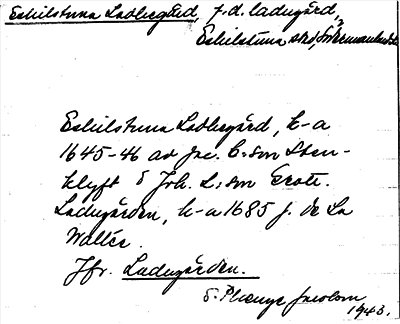 Eskilstuna Ladugård, f.d. ladugård,
Eskilstuna stad, Södermanland
Eskilstuna Ladugård, k-a
1645-46 av Jac. C:son Sten-
klyft & Joh. L:son Grot.
Ladugården, k-a 1685 f. de la
Wallée.
Jfr. Ladugården.
S. Phenye Jacobson
1943.